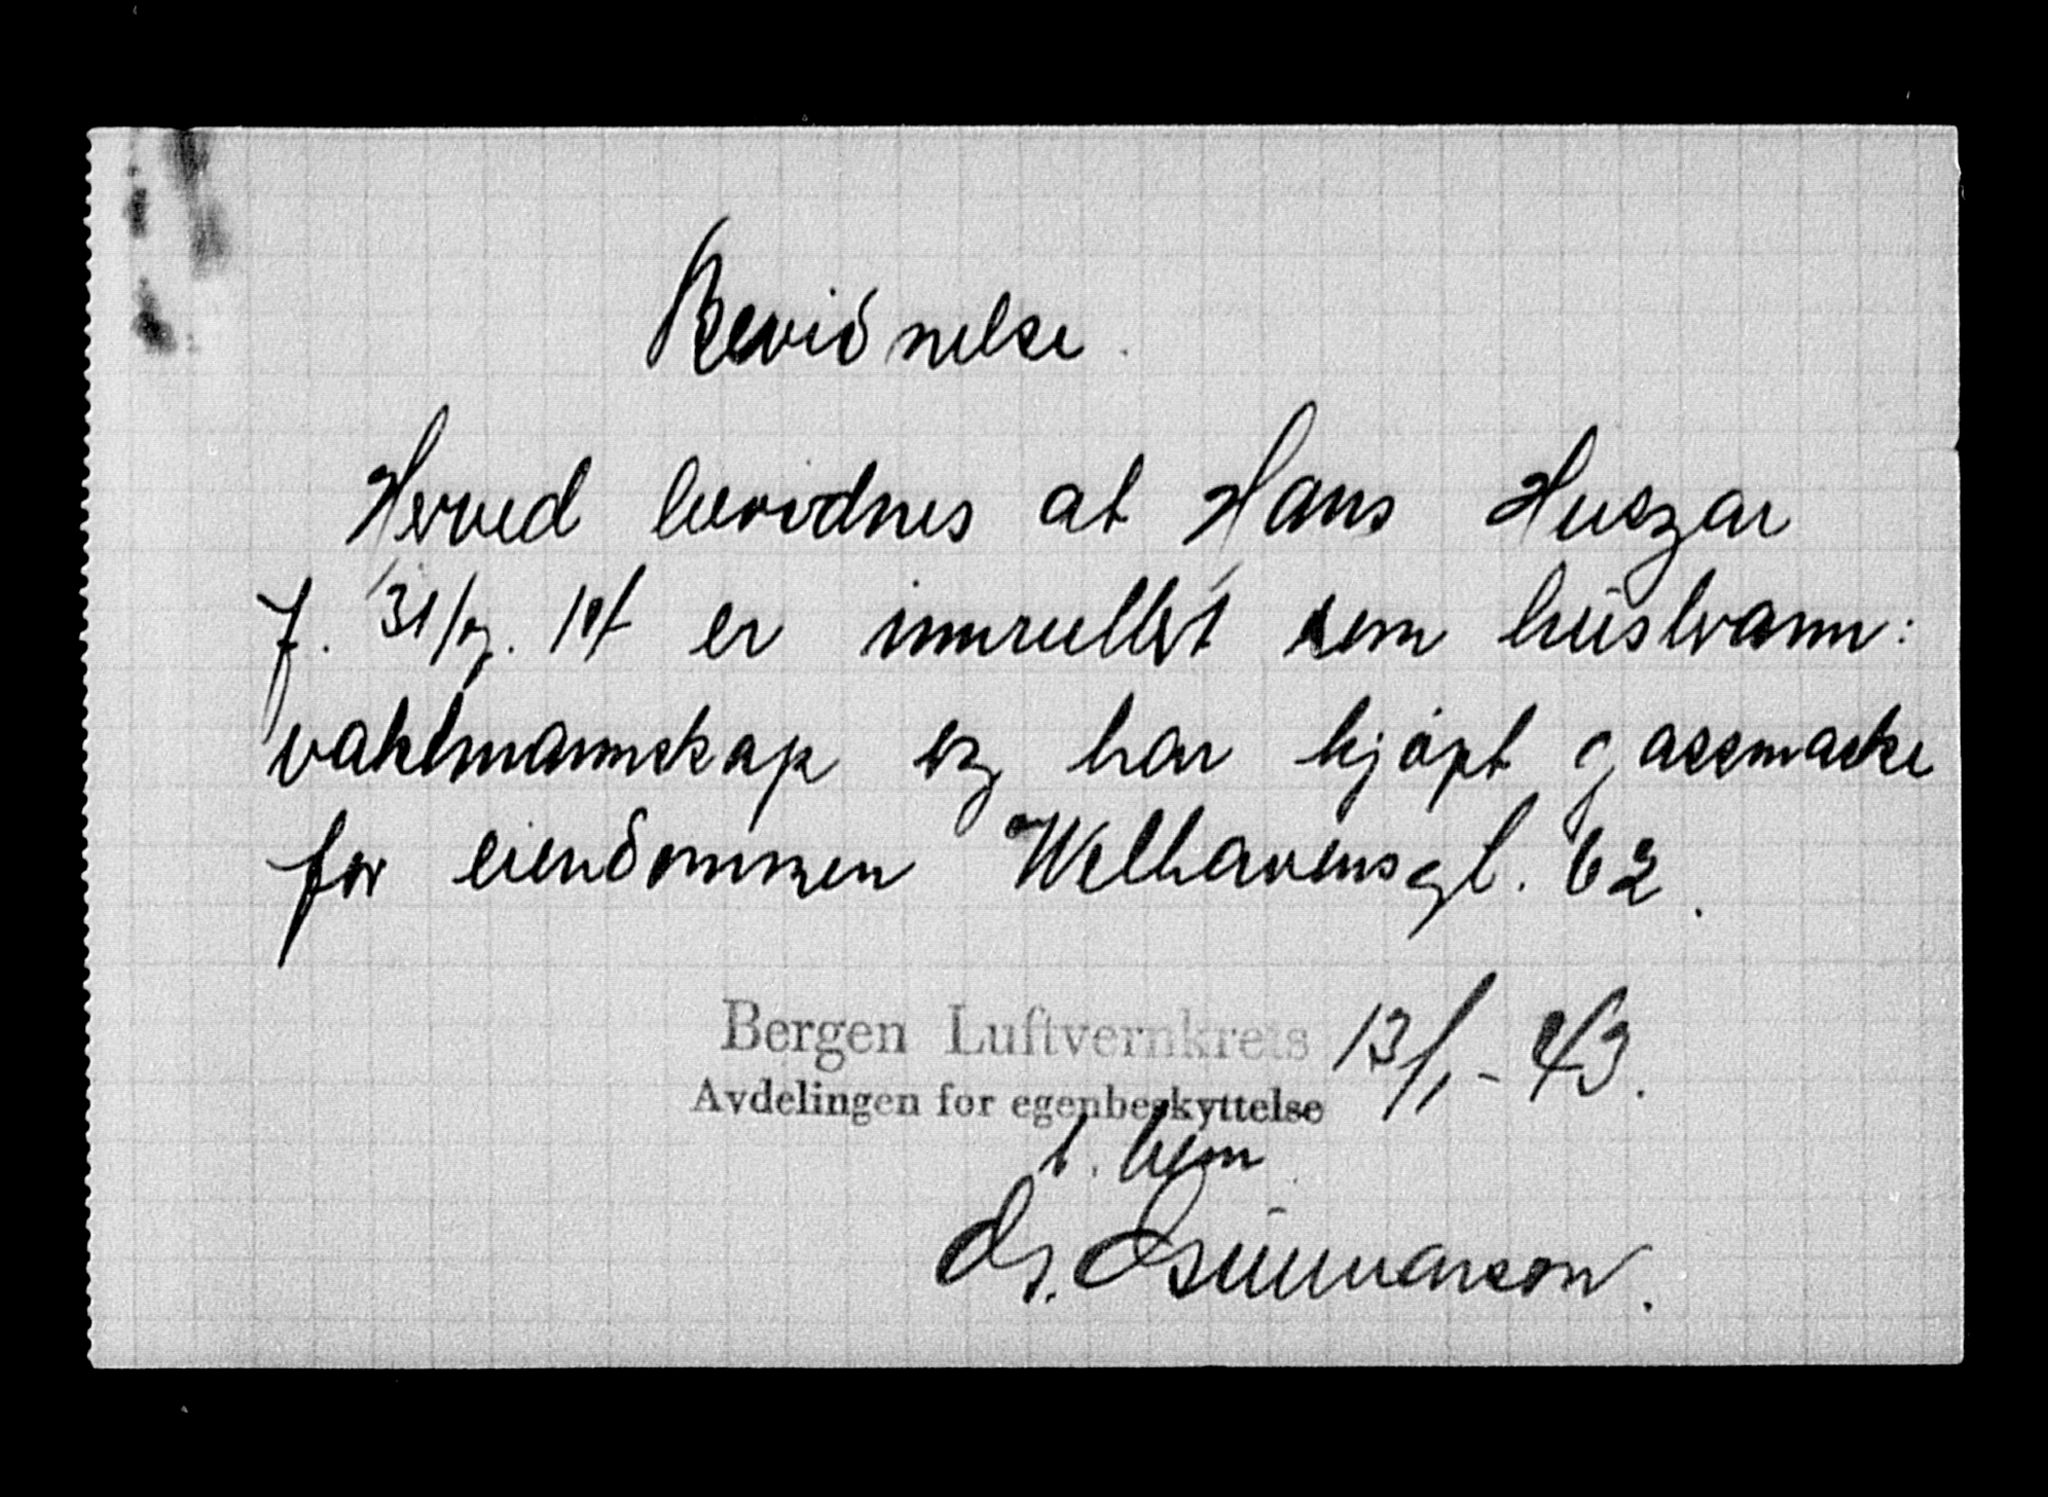 Bevidnelse.
Herved bevidnes at Hans Huszar
f. 31/ er innrullert som husbrann:
vaktmannskap og har kjøpt gassmaske
for eiendommen Welhavensgt. 62.
Bergen Luftvernkreis 13/1 - 43.
Avdelingen for egenbeskyttelse
Gunnarson.